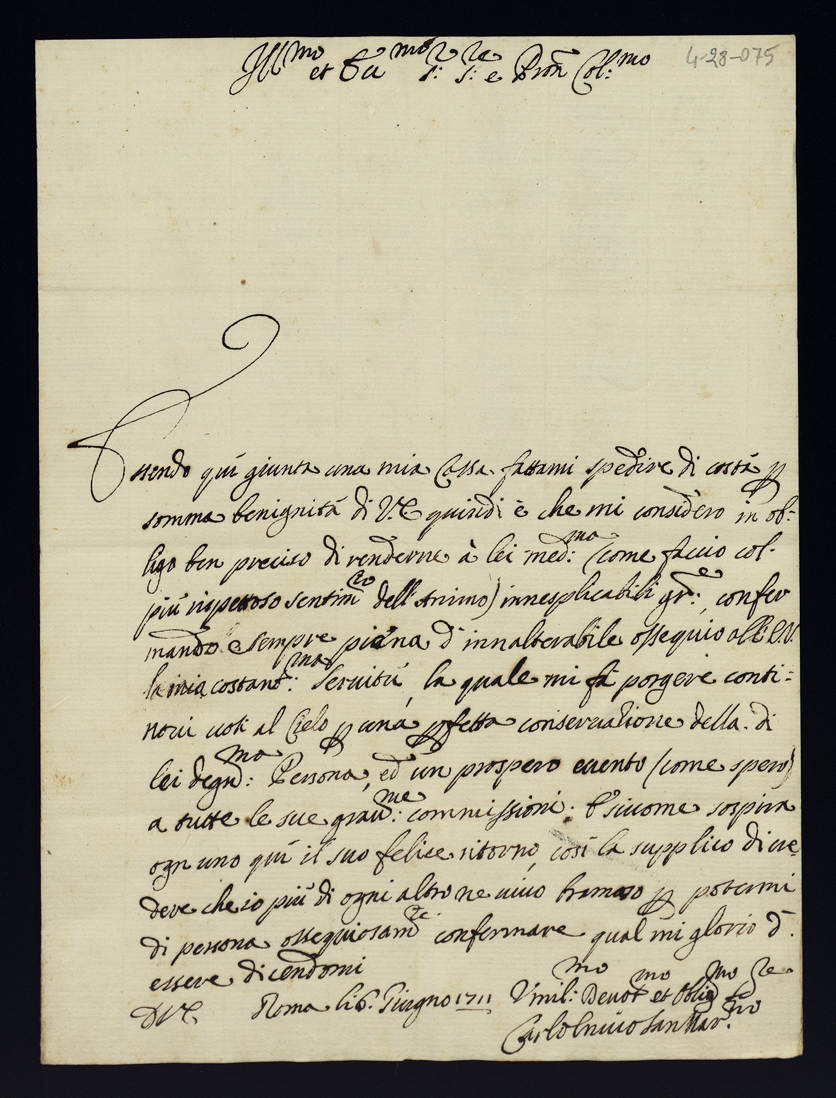 4-28-075
Ill.mo et Ecc.mo S.r S.r e Pron Col:mo
Essendo quì giunta una mia Cassa fattami spedire di costà p
somma benignità di V.E. quindi è che mi considero in ob:
ligo ben preciso di renderne à lei med:ma (come faccio col
più rispettoso sentim.to dell'Animo) innesplicabili gr:e, confer
mando e sempre piena d'innalterabile ossequio all'E.V.
la mia costant:ma Servitù, la quale mi fà porgere conti:
novi voti al Cielo p una pfetta conservatione della di
lei degn:ma Persona, ed un prospero evento (come spero)
a tutte le sue grav:me commissioni. E siccome sospira
ogn uno quì il suo felice ritorno, così la supplico di cre
dere che io più di ogni altro ne vivo bramoso p potermi
di persona ossequiosam.te confermare qual mi glorio d'
essere dicendomi
D V.E. Roma li 6 Giugno 1711 Vmil:mo Devot.mo et Oblig.mo Se.re
Carlo